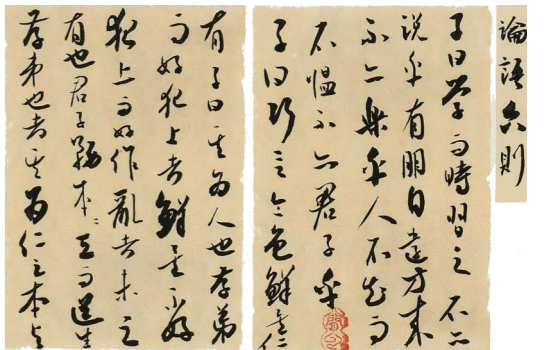 論語六則
子曰學而時習之不亦
説乎有朋自遠方来
不亦樂乎人不知而
不愠不亦君子乎
子曰巧言令色鮮矣仁
有子曰其為人也孝弟
而好犯上者鮮矣不好
犯上而好作亂者未之
有也君子務本〻立而道生
孝弟也者其為仁之本与